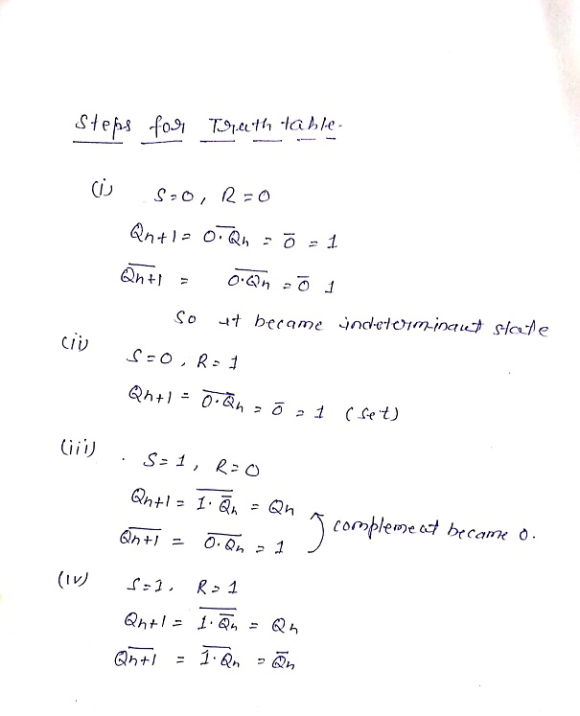 Steps for Truth table.
(i) S=0, R=0
Qn+1 = \overline{0·\overline{Qn}} = \overline{0} = 1
\overline{Qn+1} = \overline{0·Qn} = \overline{0} 1
So it became indeterminaut state
(ii) S=0, R=1
Qn+1 = \overline{0·\overline{Qn}} = \overline{0} = 1 (Set)
(iii) S=1, R=0
Qn+1 = \overline{1·\overline{Qn}} = Qn
\overline{Qn+1} = \overline{0·Qn} = 1 } complement became 0.
(iv) S=1, R=1
Qn+1 = \overline{1·\overline{Qn}} = Qn
\overline{Qn+1} = \overline{1·Qn} = \overline{Qn}